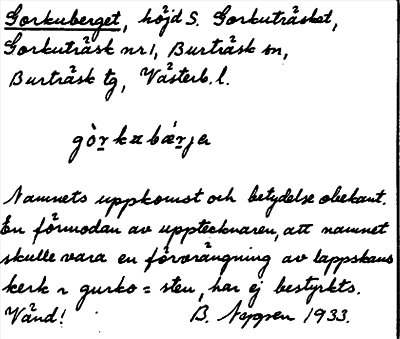 Gorkuberget, höjd S. Gorkuträsket,
Gorkuträsk nr 1, Burträsk sn,
Burträsk tg, Västerb. l.
Namnets uppkomst och betydelse obekant.
En förmodan av upptecknaren, att namnet
skulle vara en förvrängning av lappskans
kerk ~ gurko = sten, har ej bestyrkts.
Vänd! B. Nygren 1933.